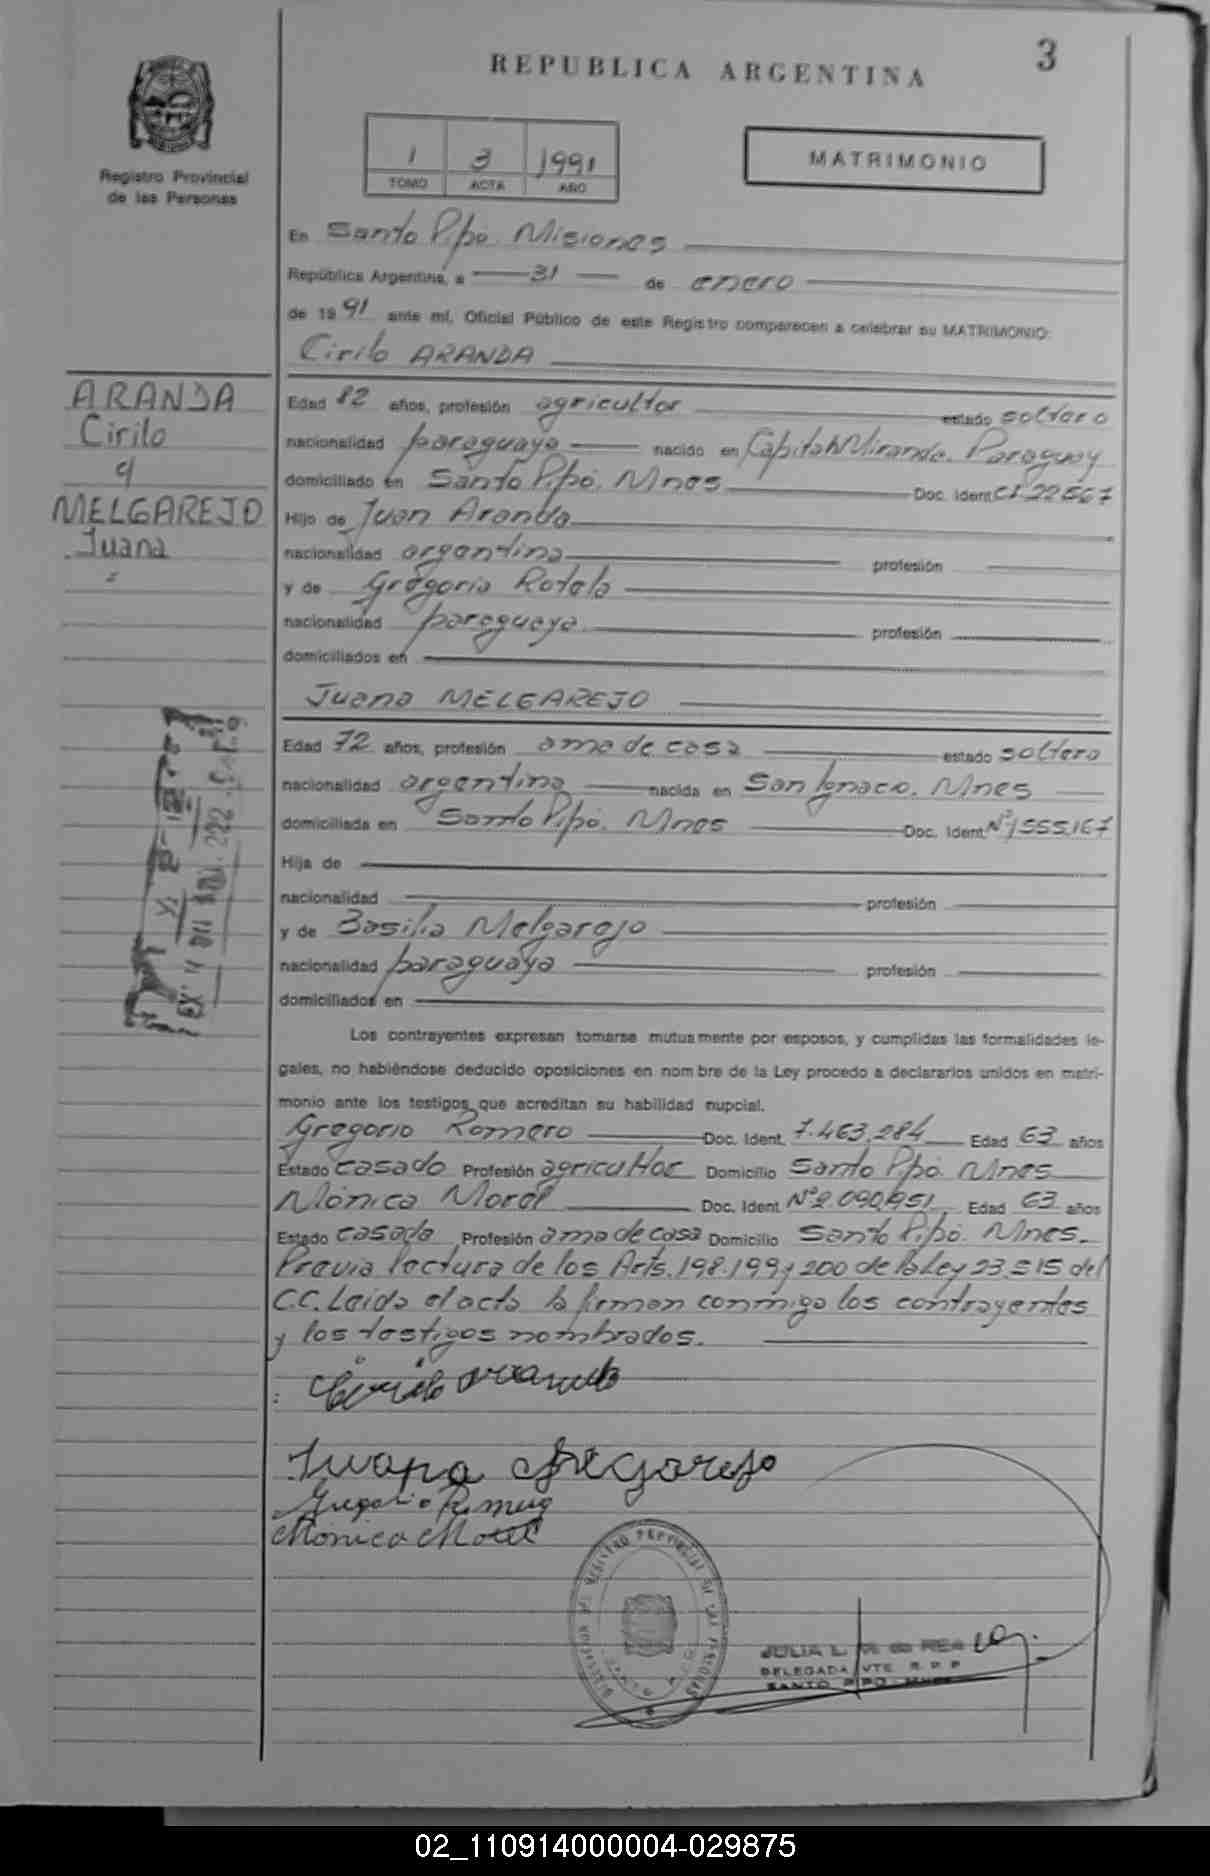 REPUBLICA ARGENTINA
3
Registro Provincial
de las Personas
1 3 1991
TOMO ACTA AÑO
MATRIMONIO
En Santo Pipó. Misiones
República Argentina, a 31 de enero
de 19 91 ante mí, Oficial Público de este Registro comparecen a celebrar su MATRIMONIO:
Cirilo ARANDA
ARANDA
Cirilo
y
MELGAREJO
Juana
Edad 82 años, profesión agricultor estado soltero
nacionalidad paraguaya nacido en Capitan Miranda. Paraguay
domiciliado en Santo Pipó. Mnes Doc. Ident CI. 22567
Hijo de Juan Aranda
nacionalidad argentina profesión
y de Gregoria Rotela
nacionalidad paraguaya. profesión
domiciliados en
Juana MELGAREJO
Edad 72 años, profesión ama de casa estado soltera
nacionalidad argentina nacida en San Ignacio. Mnes
domiciliada en Santo Pipó. Mnes Doc. Ident Nº 1555.167
Hija de
nacionalidad profesión
y de Basilia Melgarejo
nacionalidad paraguaya profesión
domiciliados en
Los contrayentes expresan tomarse mutuamente por esposos, y cumplidas las formalidades le-
gales, no habiéndose deducido oposiciones en nombre de la Ley procedo a declararlos unidos en matri-
monio ante los testigos que acreditan su habilidad nupcial.
Gregorio Romero Doc. Ident. 7.463.284 Edad 63 años
Estado casado Profesión agricultor Domicilio Santo Pipó. Mnes
Mónica Morel Doc. Ident Nº 2.090.951 Edad 63 años
Estado casada Profesión ama de casa Domicilio Santo Pipó. Mnes.
Previa lectura de los Arts. 198.199 y 200 de la Ley 23.515 del
C.C. Leida el acta la firman conmigo los contrayentes
y los testigos nombrados.
Juana Melgarejo
Mónica Morel
REGISTRO PROVINCIAL DE LAS PERSONAS
JULIA L. de REA
DELEGADA VTE. R. P. P
SANTO PIPO - MNES
02_110914000004-029875